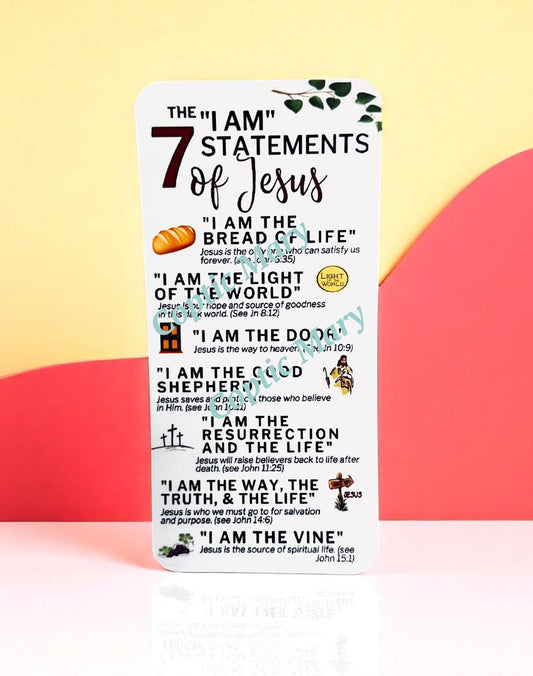 THE "I AM"
7 STATEMENTS
of Jesus
"I AM THE
BREAD OF LIFE"
Jesus is the only one who can satisfy us
forever. (see John 6:35)
"I AM THE LIGHT
OF THE WORLD"
LIGHT
OF THE
WORLD
Jesus is our hope and source of goodness
in this dark world. (See Jn 8:12)
"I AM THE DOOR"
Jesus is the way to heaven. (See Jn 10:9)
"I AM THE GOOD
SHEPHERD"
Jesus saves and protects those who believe
in Him. (see John 10:11)
"I AM THE
RESURRECTION
AND THE LIFE"
Jesus will raise believers back to life after
death. (see John 11:25)
"I AM THE WAY, THE
TRUTH, & THE LIFE"
JESUS
Jesus is who we must go to for salvation
and purpose. (see John 14:6)
"I AM THE VINE"
Jesus is the source of spiritual life. (see
John 15:1)
Coptic Mary
Coptic Mary